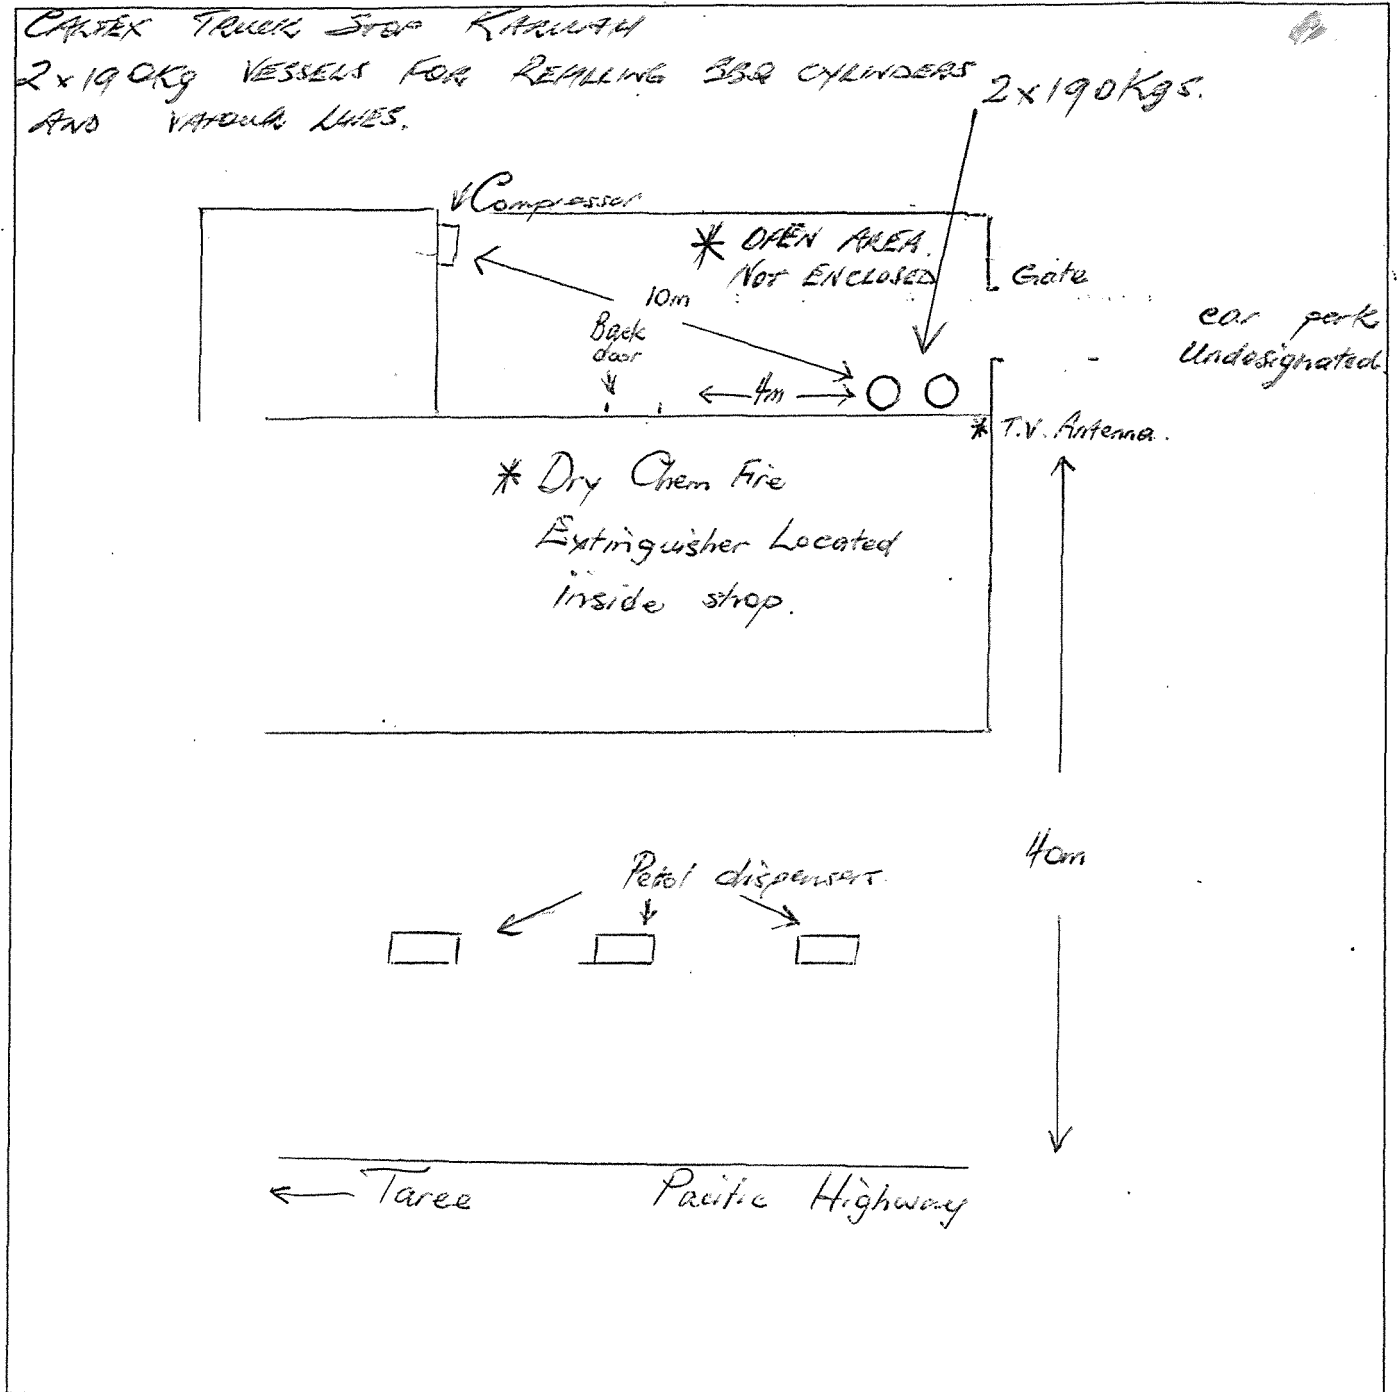 CALTEX TRUCK STOP KARUAH
2x190Kg VESSELS FOR REFILLING BBQ CYLINDERS
AND VAPOUR LINES.
2x190Kgs.
Compressor
* OPEN AREA.
NOT ENCLOSED
Gate
10m
Back
door
car park
Undesignated.
4m
* T.V. Antenna.
* Dry Chem Fire
Extinguisher Located
inside shop.
40m
Petrol dispensers.
Taree
Pacific Highway